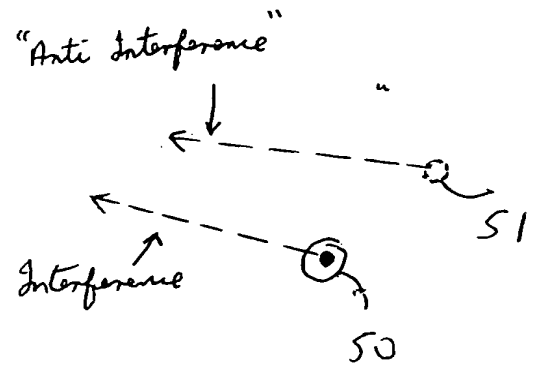 "Anti Interference"
"
51
Interference
50